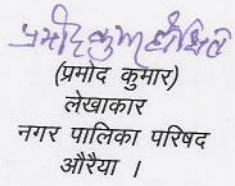 प्रमोद कुमार दीक्षित
(प्रमोद कुमार)
लेखाकार
नगर पालिका परिषद
औरैया ।